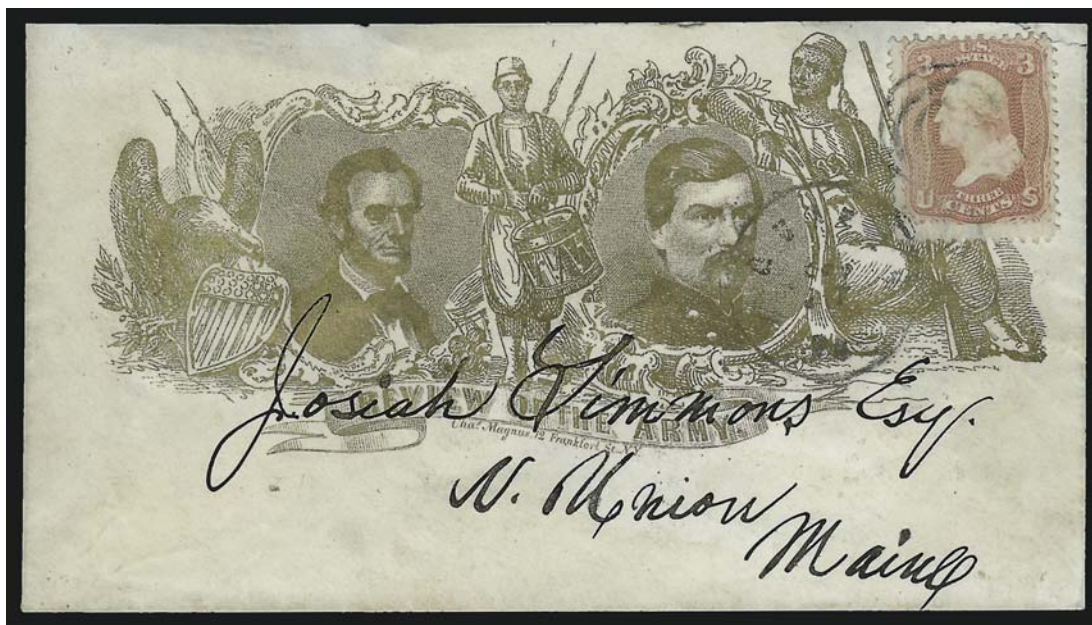 U.S.
3 POSTAGE 3
U THREE S
CENTS
REVIEW OF THE ARMY.
Chas. Magnus, 12 Frankfort St. N.Y.
Josiah Simmons Esq.
N. Union
Maine